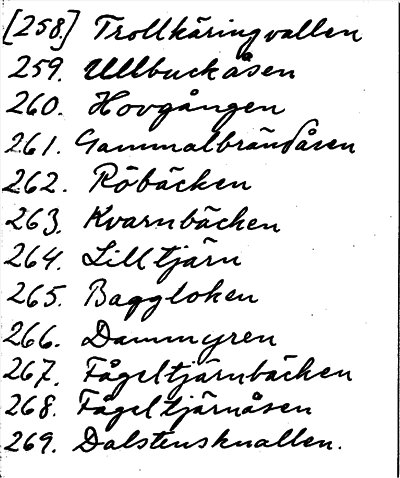 [258.] Trollkäringvallen
259. Ullbuckåsen
260. Hovgången
261. Gammalbrändåsen
262. Röbäcken
263. Kvarnbäcken
264. Lilltjärn
265. Baggloken
266. Dammyren
267. Fågeltjärnbäcken
268. Fågeltjärnåsen
269. Dalstensknallen.